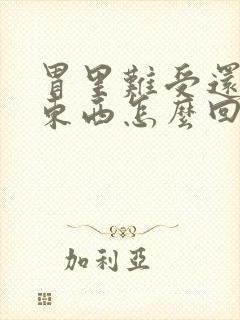 胃里難受還
東西怎麼回
加利亞